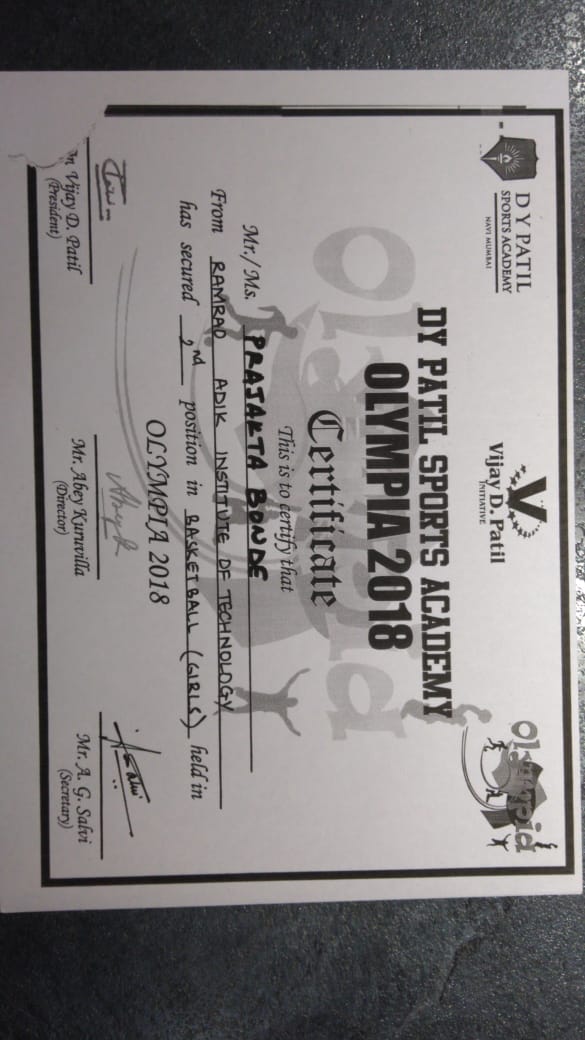 D Y PATIL
SPORTS ACADEMY
NAVI MUMBAI
Vijay D. Patil
INITIATIVE
Olympia
DY PATIL SPORTS ACADEMY
OLYMPIA 2018
Certificate
This is to certify that
Mr./Ms. PRAJAKTA BONDE
From RAMRAO ADIK INSTITUTE OF TECHNOLOGY
has secured 2nd position in BASKETBALL (GIRLS) held in
OLYMPIA 2018
Vijay D. Patil
(President)
Mr. Abey Kuruvilla
(Director)
Mr. A. G. Salvi
(Secretary)